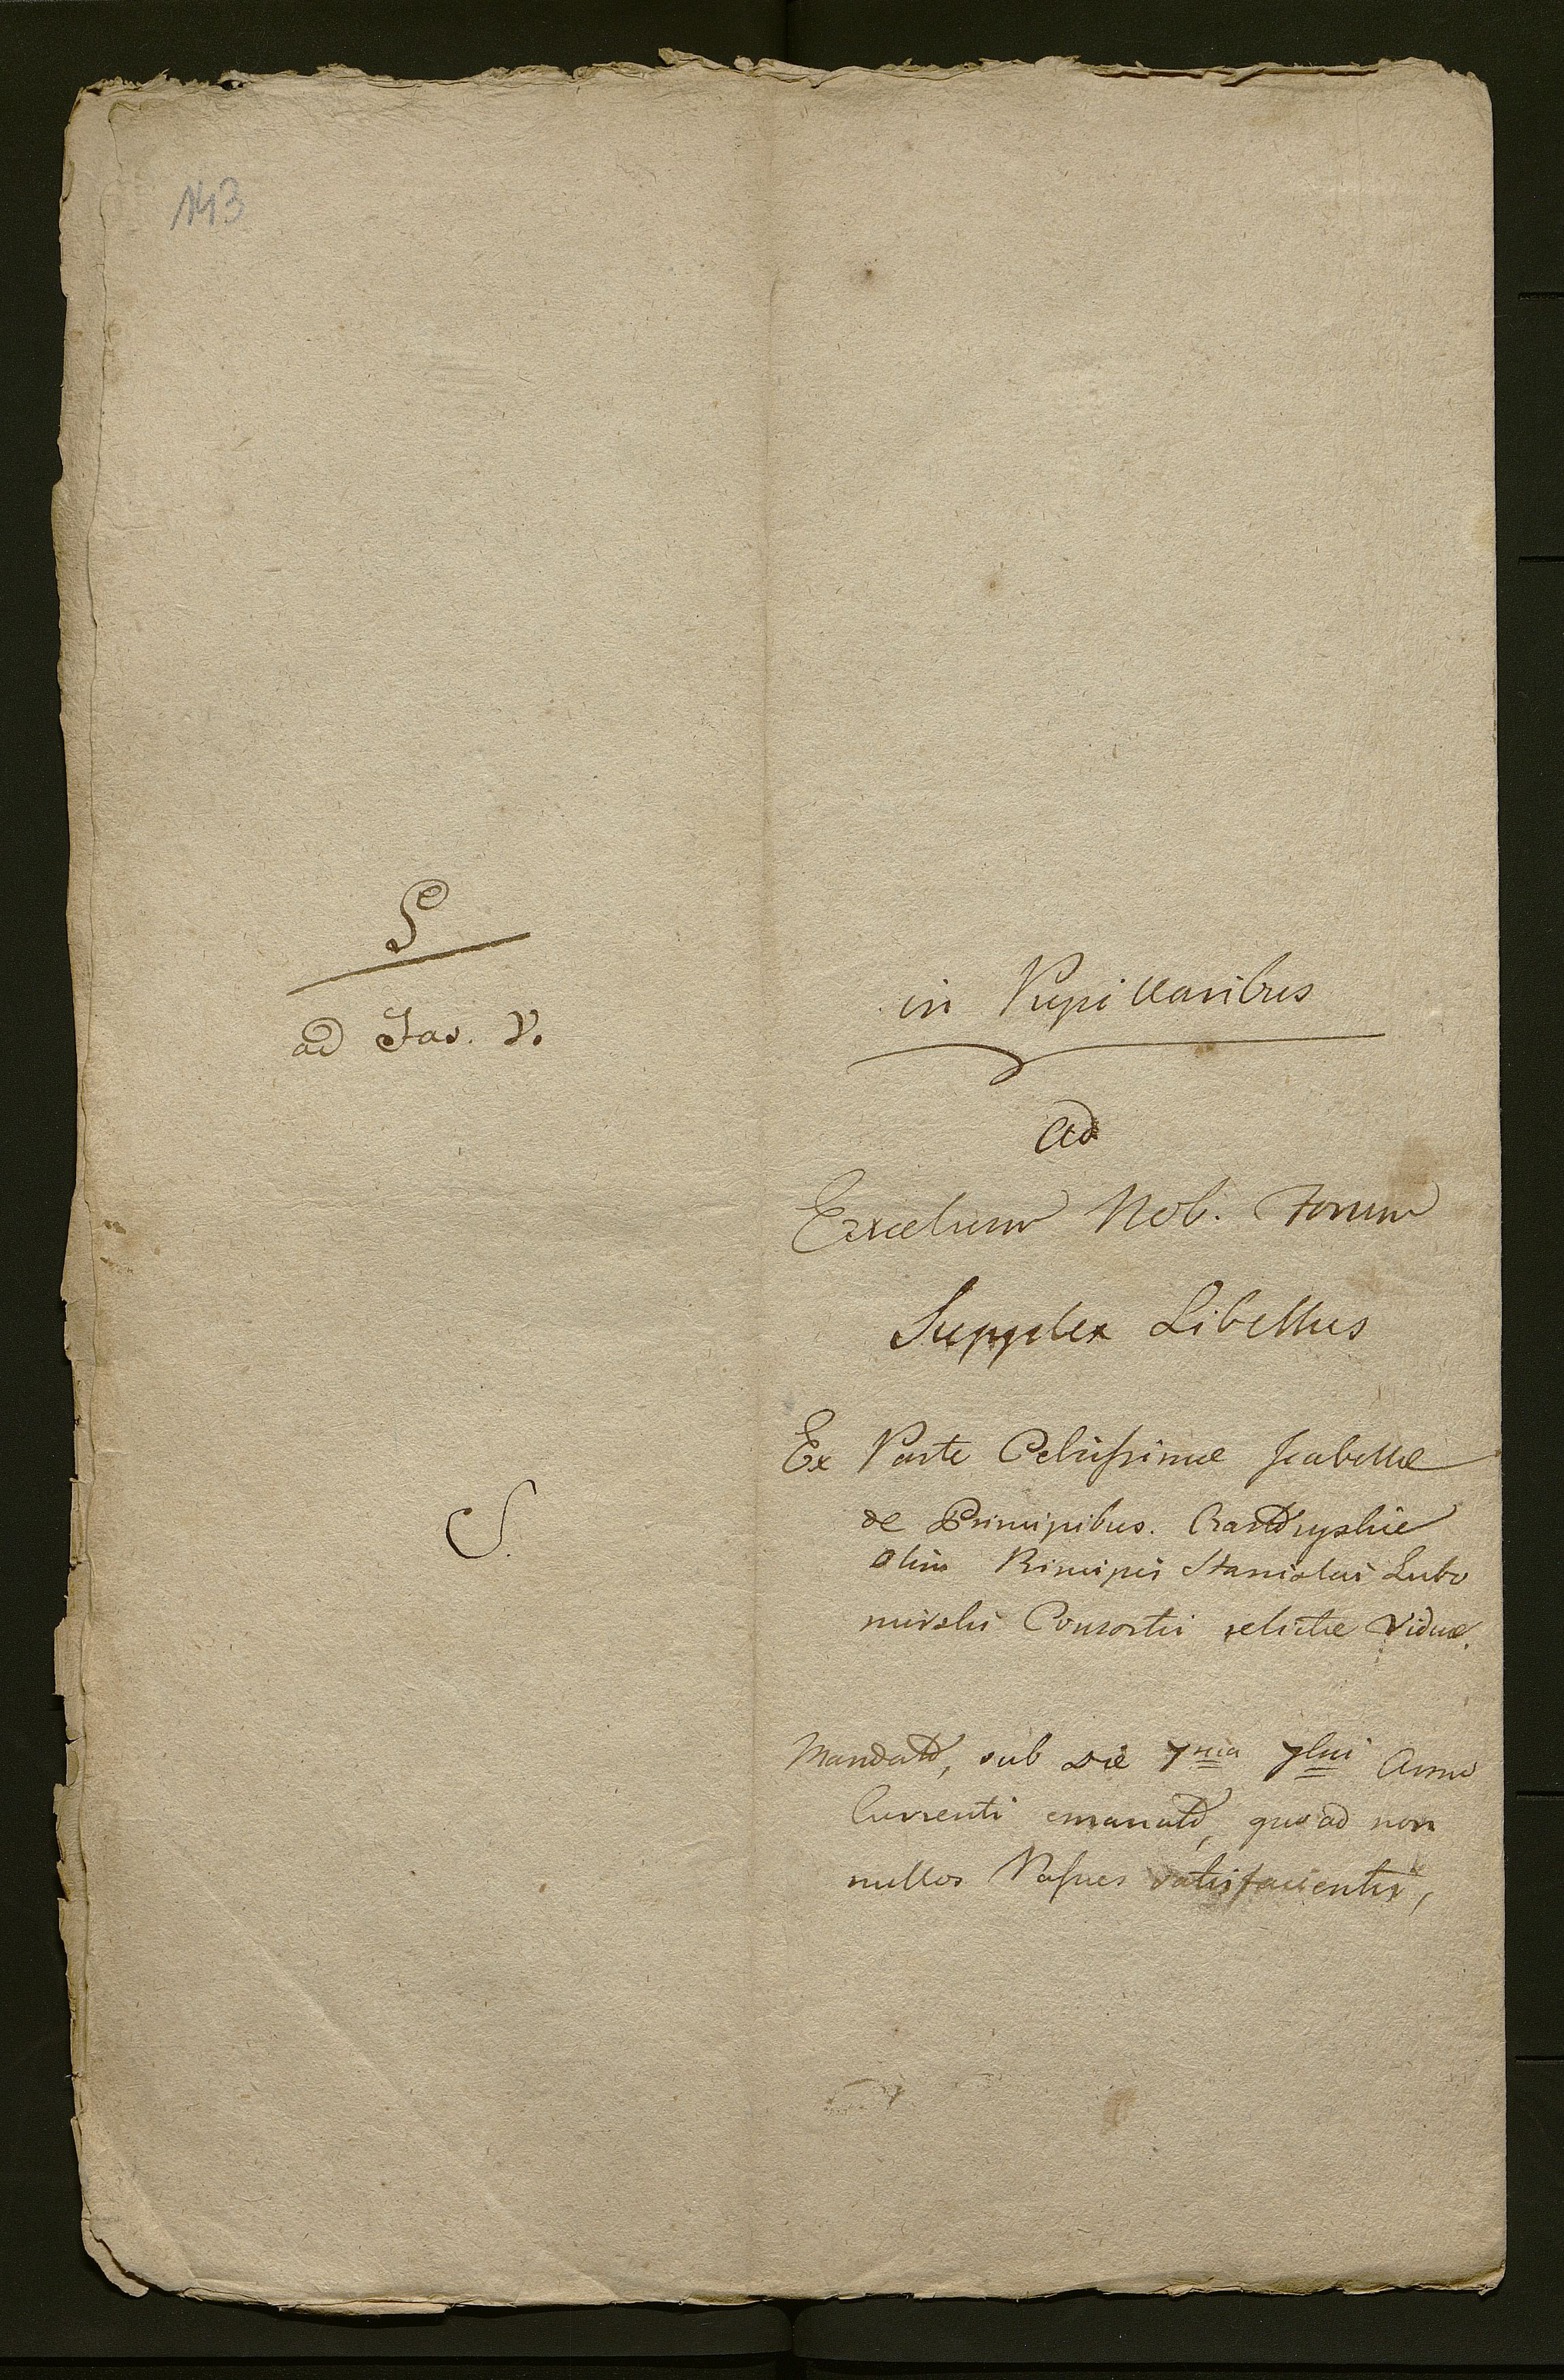 143
S
ad Fas. V.
S.
in Pupillaribus
ad
Excelsum Nob. Forum
Supplex Libellus
Ex Parte Celsissimæ Isabellæ
de Principibus. Czartoryskie
olim Principis Stanislai Lubo
mirski Consortis relictæ Viduæ.
Mandato, sub die 7ma 7bris Anno
Currenti emanato, quoad non
nullos Passus satisfacientis,